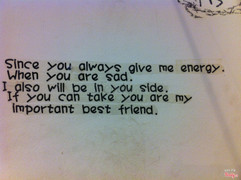 Since you always give me energy.
When you are sad.
I also will be in you side.
If you can take you are my
important best friend.